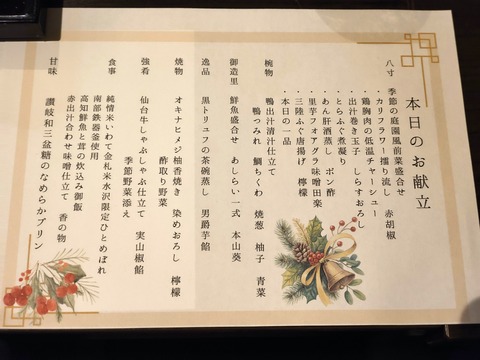 本日のお献立
八寸 季節の庭園風前菜盛合せ
・カリフラワー擂り流し 赤胡椒
・鶏胸肉の低温チャーシュー
・出汁巻き玉子 しらすおろし
・とらふぐ煮凝り
・あん肝酒蒸し ポン酢
・里芋フォアグラ味噌田楽
・三陸ふぐ唐揚げ 檸檬
・本日の一品
椀物 鴨出汁清汁仕立て
鴨つみれ 鯛ちくわ 焼葱 柚子 青菜
御造里 鮮魚盛合せ あしらい一式 本山葵
逸品 黒トリュフの茶碗蒸し 男爵芋餡
焼物 オキナヒメジ柚香焼き 染めおろし 檸檬
酢取り野菜
強肴 仙台牛しゃぶしゃぶ仕立て 実山椒餡
季節野菜添え
食事 純情米いわて金札米水沢限定ひとめぼれ
南部鉄器釜使用
高知鮮魚と茸の炊込み御飯
赤出汁合わせ味噌仕立て 香の物
甘味 讃岐和三盆糖のなめらかプリン